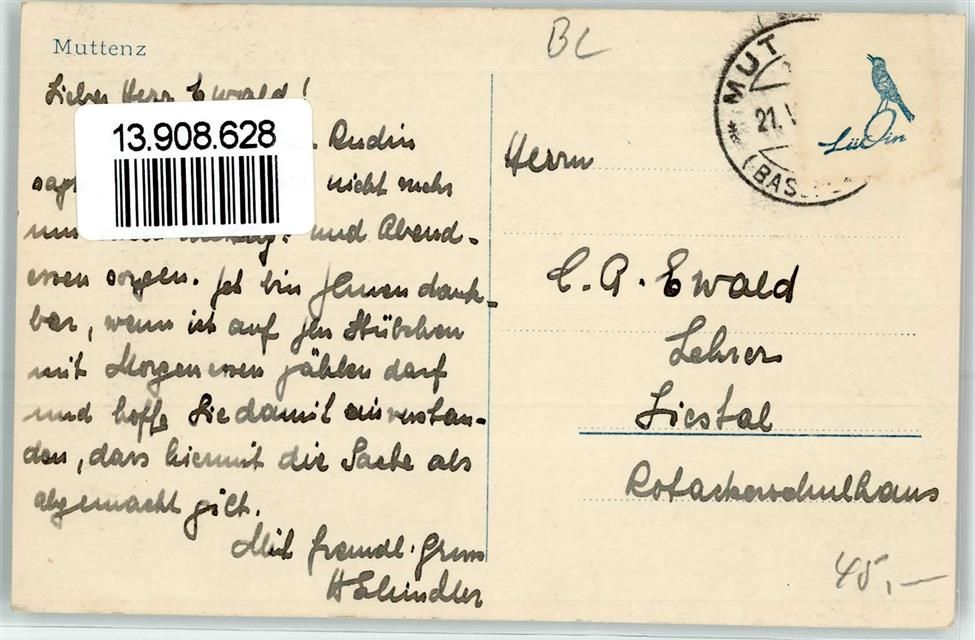 Muttenz
BL
Lieber Herr Ewald!
13.908.628
Rudin
nicht mehr
und Abend-
essen sorgen. Ich bin Ihnen dank-
bar, wenn ich auf Ihr Stübchen
mit Morgenessen zählen darf
und hoffe Sie damit einverstan-
den, dass hiermit die Sache als
abgemacht gilt.
Mit freundl. Gruss
H Schindler
MUT
21.
(BAS
Lüdin
Herrn
C. A. Ewald
Lehrer
Liestal
Rotackerschulhaus
45,—